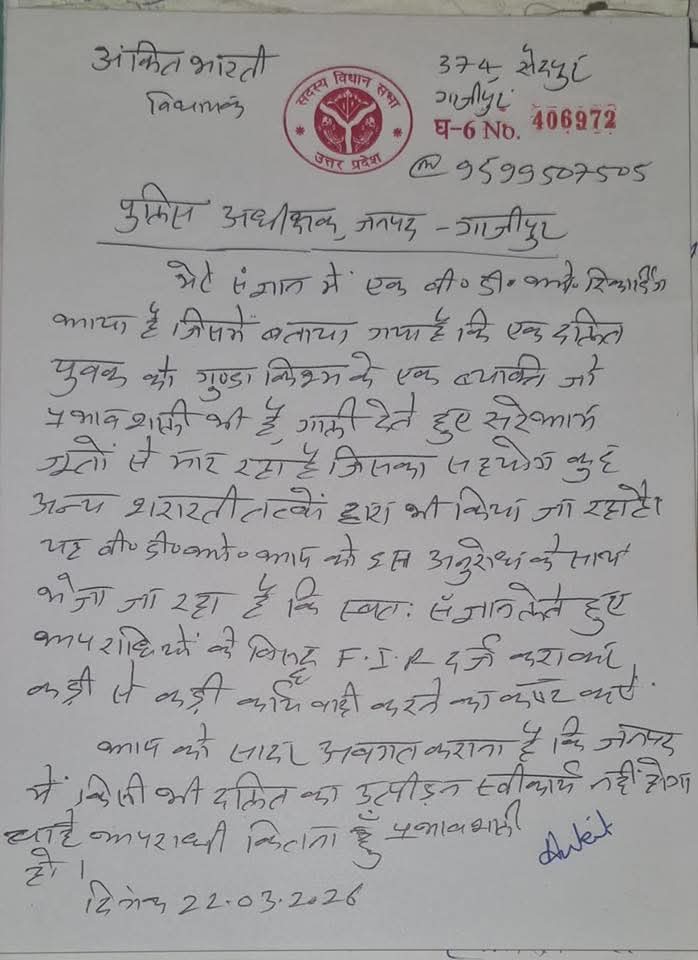 अंकित भारती
विधायक
सदस्य विधान सभा
उत्तर प्रदेश
374 सैदपुर
गाजीपुर
घ-6 No. 406972
9599507505
पुलिस अधीक्षक, जनपद - गाजीपुर
मेरे संज्ञान में एक वी॰ डी॰ ओ॰ रिकार्डिंग
आया है जिसमें बताया गया है कि एक दलित
युवक को गुण्डा किश्म के एक व्यक्ति जो
प्रभावशाली भी है, गाली देते हुए सरेआम
जूतों से मार रहा है जिसका सहयोग कुछ
अन्य शरारती तत्वों द्वारा भी किया जा रहा है।
यह वी॰ डी॰ ओ॰ आप को इस अनुरोध के साथ
भेजा जा रहा है कि स्वतः संज्ञान लेते हुए
अपराधियों के विरुद्ध F.I.R दर्ज कराकर
कड़ी से कड़ी कार्यवाही करने का कष्ट करें.
आप को सादर अवगत कराना है कि जनपद
में किसी भी दलित का उत्पीड़न स्वीकार्य नहीं होगा
चाहे अपराधी कितना हूँ प्रभावशाली
हो।
Ankit
दिनांक 22.03.2026